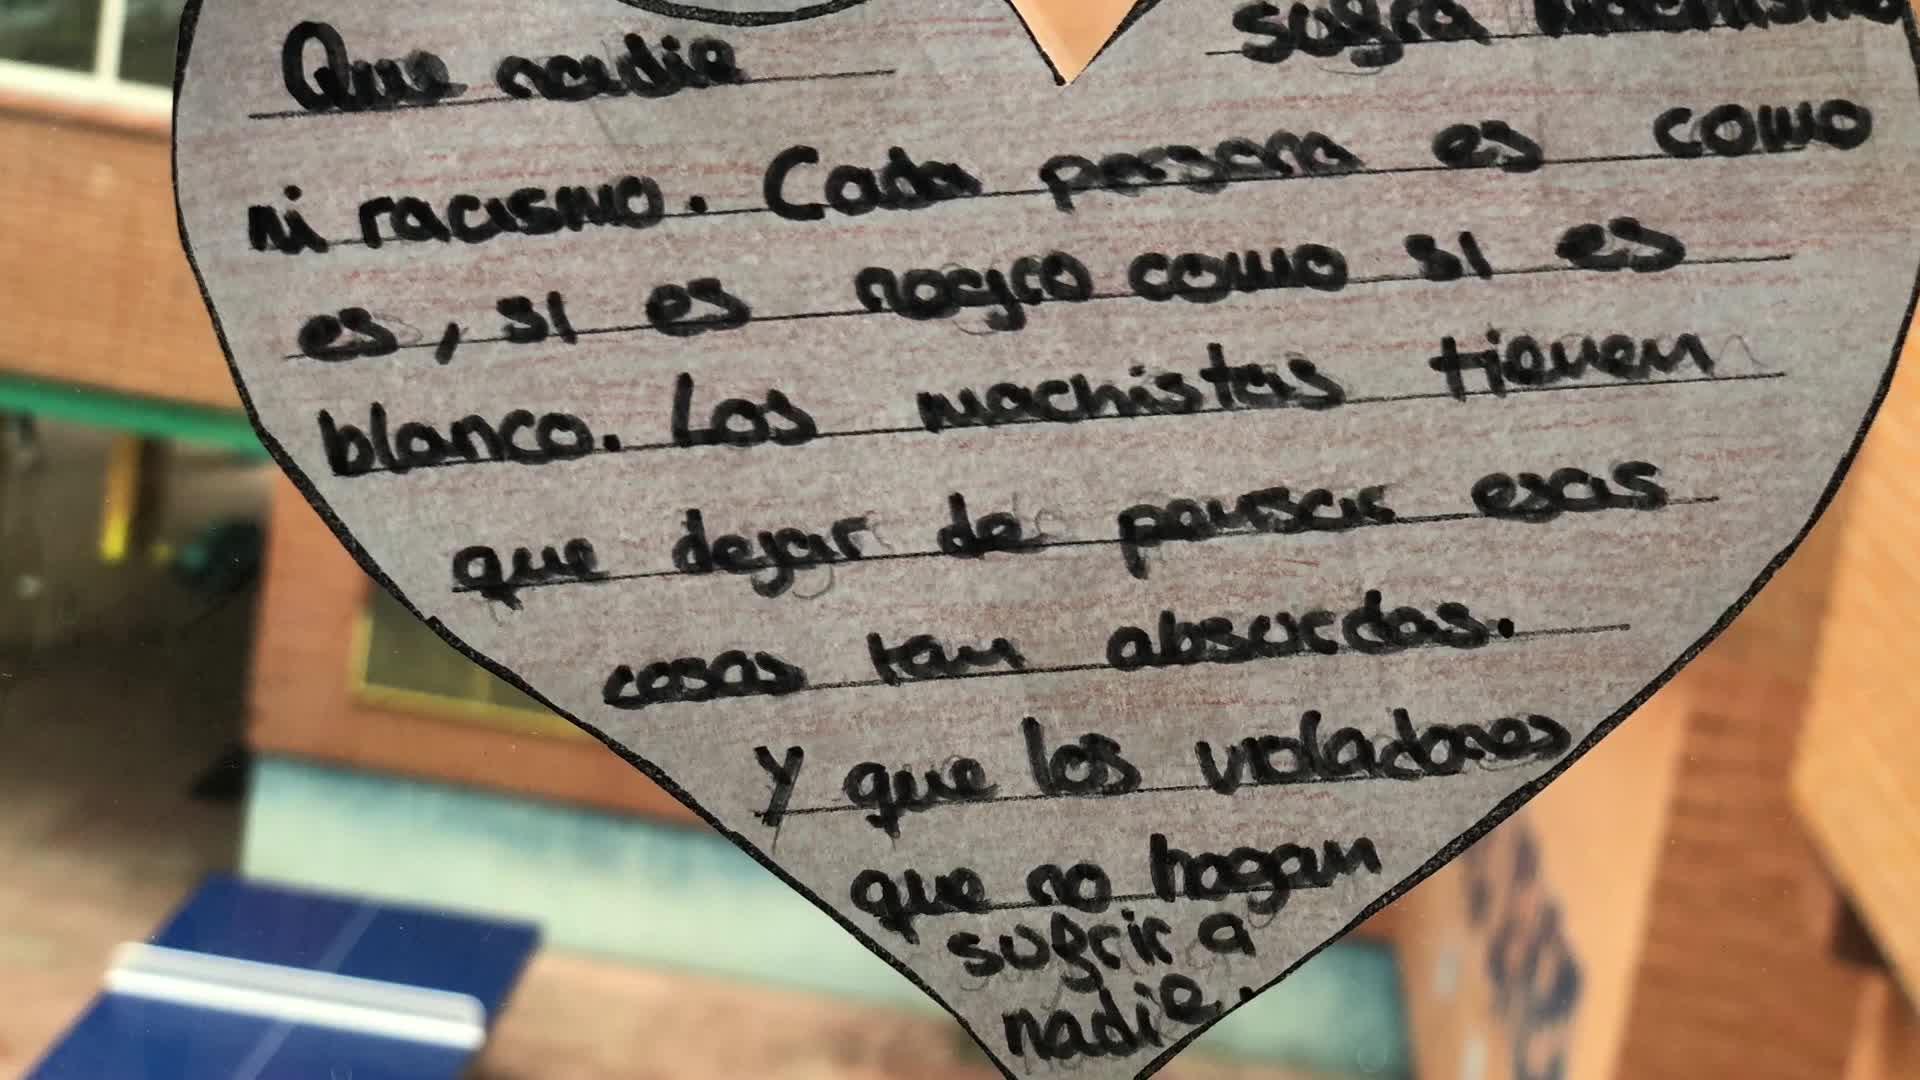 Que nadie sufra machismo
ni racismo. Cada persona es como
es, si es noegro como si es
blanco. Los machistas tienen
que dejar de pensar esas
cosas tan absurdas.
Y que los violadores
que no hagan
sufrir a
nadie.